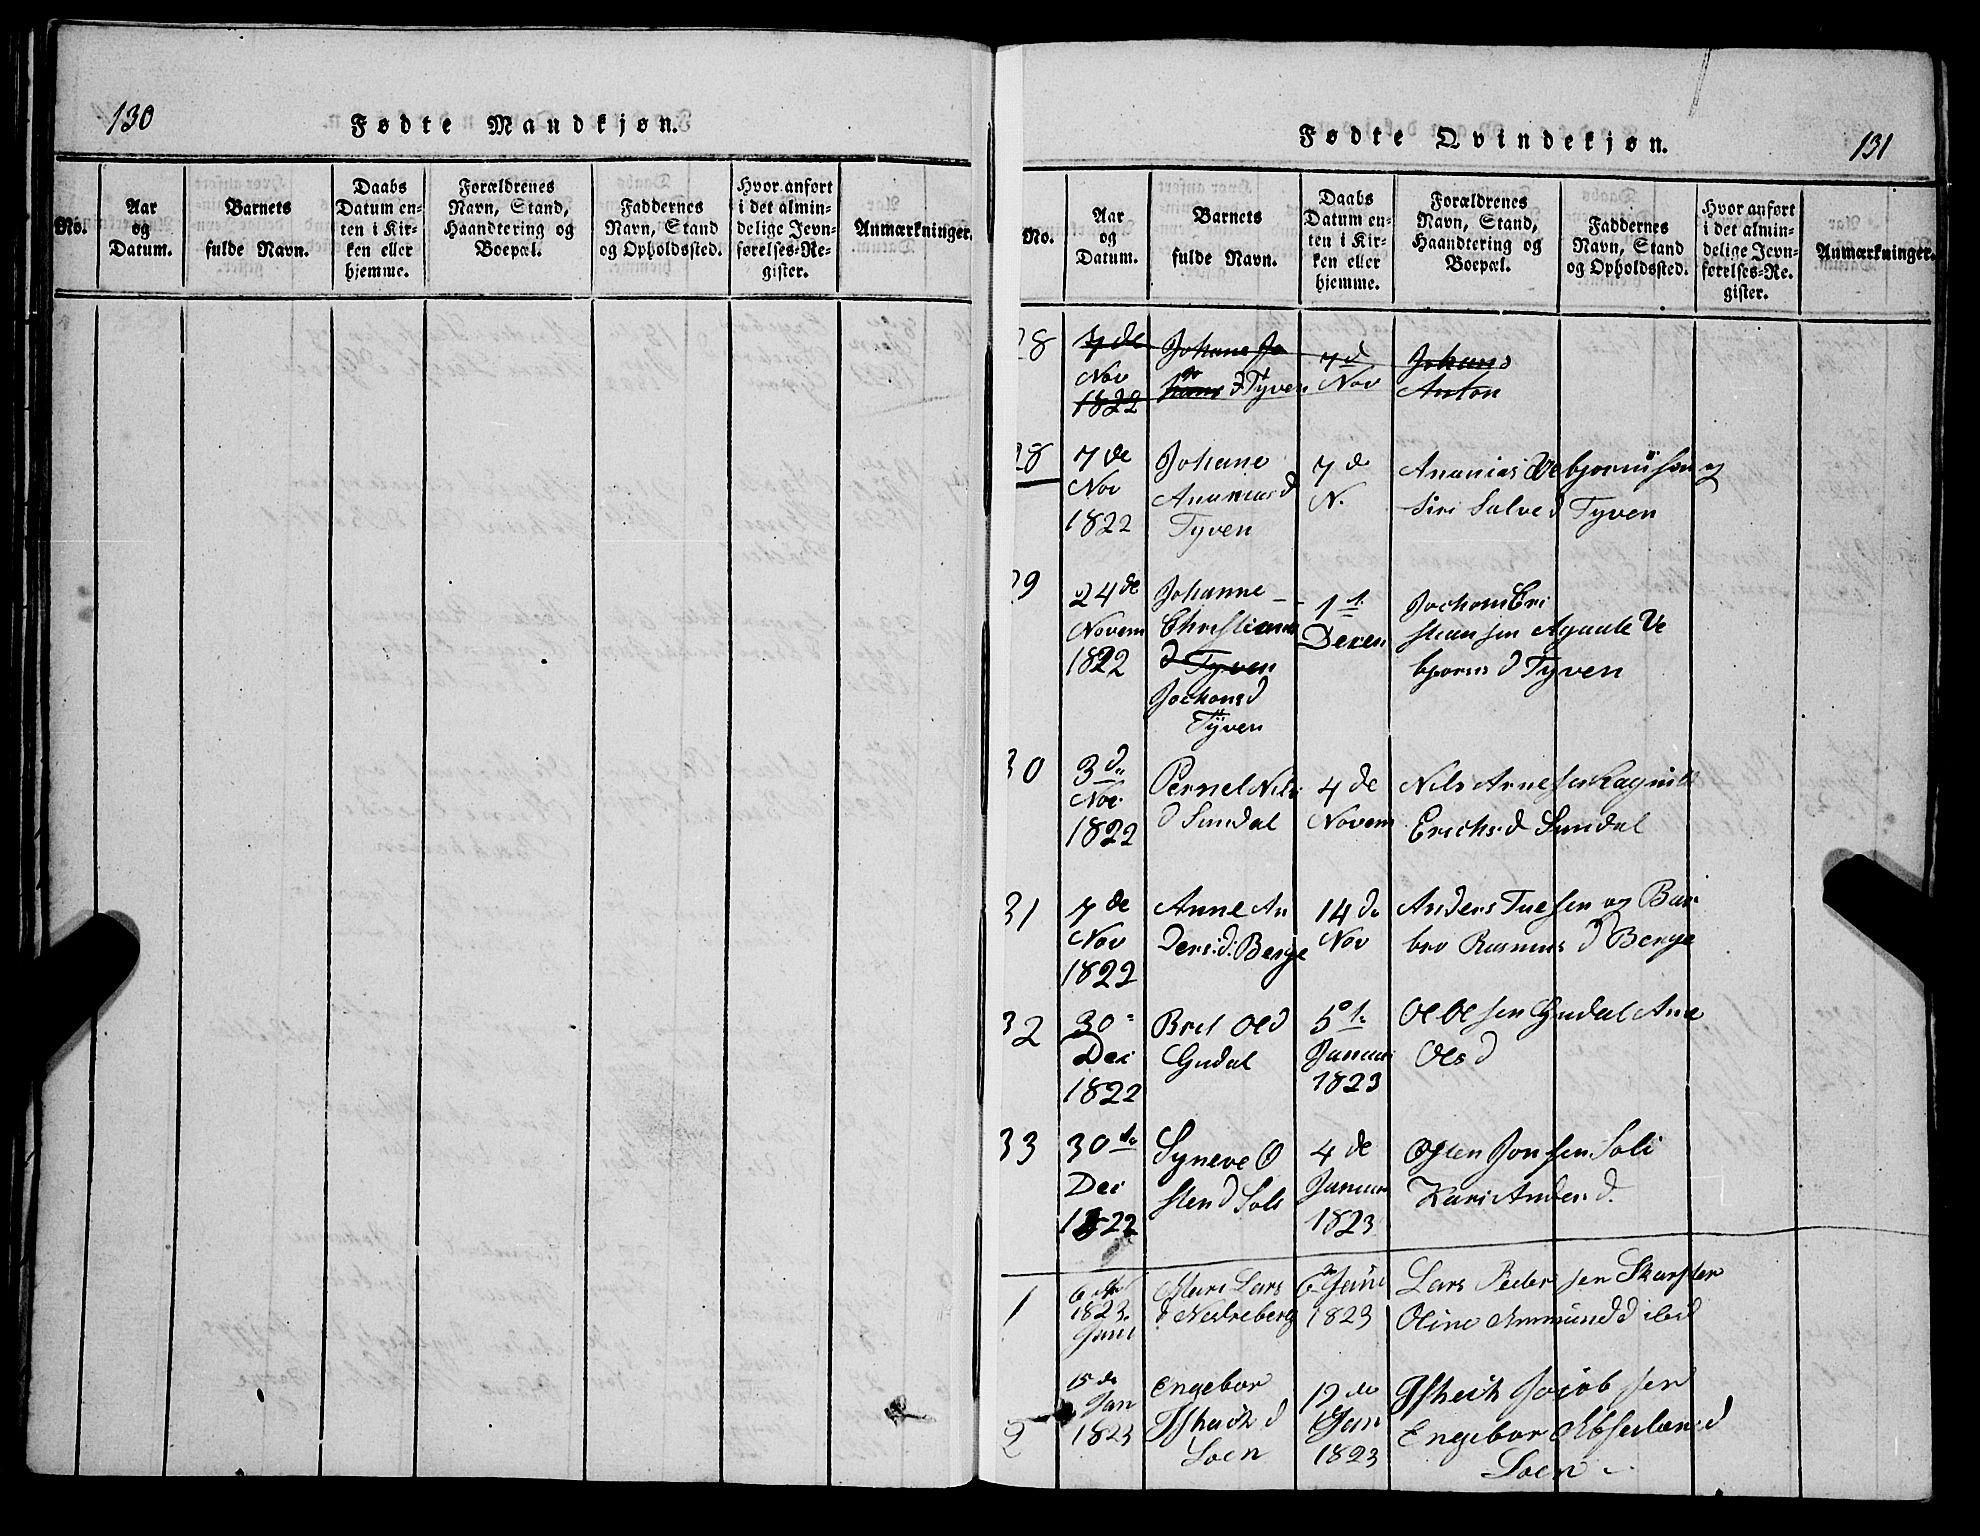 130
Fødte Mandkjøn.
No.
Aar
og
Datum.
Barnets
fulde Navn.
Daabs
Datum en-
ten i Kir-
ken eller
hjemme.
Forældrenes
Navn, Stand,
Haandtering og
Boepæl.
Faddernes
Navn, Stand
og Opholdssted.
Hvor anført
i det almin-
delige Jevn-
førelses-Re-
gister.
Anmærkninger.
Fødte Qvindekjøn.
131
No.
Aar
og
Datum.
Barnets
fulde Navn.
Daabs
Datum en-
ten i Kir-
ken eller
hjemme.
Forældrenes
Navn, Stand,
Haandtering og
Boepæl.
Faddernes
Navn, Stand
og Opholdssted.
Hvor anført
i det almin-
delige Jevn-
førelses-Re-
gister.
Anmærkninger.
28
7 de
Nov
1822
Johane Jo
hans d Tyven
7 d
Nov
Johans
Anton
28
7 de
Nov
1822
Johane
Ananias d
Tyven
7 de
N.
Ananias Vebjørnsen og
Siri Salve d Tyven
29
24 de
Novem
1822
Johanne
Christiann
d Tyven
Jochoms d
Tyven
1 st.
Decem
Jochom Cri
stian sen Agaate Ve
bjørns d Tyven
30
3 d
Nov
1822
Pernel Nils
d Sundal
4 de
Novem
Nils Arnesen Ragnild
Erichs d Sundal
31
7 de
Nov
1822
Anne An
ders d: Berge
14 de
Nov
Anders Tuesen og Bar
bro Rasmus d Berge
32
30
Dec
1822
Bret Ol d
Gudal
5 t.
Januar
1823
Ol Olsen Gudal Ane
Ols d
33
30 te
Dec
1822
Syneve O
sten d Soli
4 de
Januar
1823
Osten Jonsen Soli
Kari Anders d.
1
6 de
1823
Janu
Mari Lars
d Nedreberg
6 de Janu
1823
Lars Pedersen Skarsten
Oline Ammund d ibid
2
15 de
Jan
1823
Engebor
d
Loen
12 de
Jan
1823
Jacob sen
Engebor d
Loen